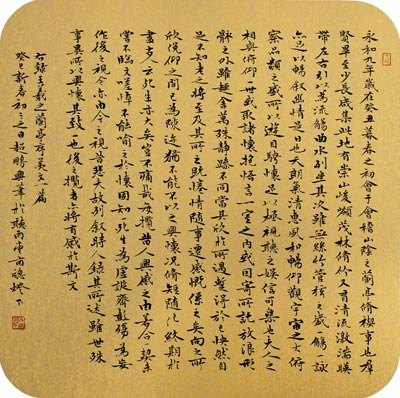 永和九年歲在癸丑暮春之初會于會稽山陰之蘭亭脩稧事也群
賢畢至少長咸集此地有崇山峻領茂林脩竹又有清流激湍暎
帶左右引以為流觴曲水列坐其次雖無絲竹管弦之盛一觴一詠
亦足以暢敘幽情是日也天朗氣清惠風和暢仰觀宇宙之大俯
察品類之盛所以遊目騁懷足以極視聽之娛信可樂也夫人之
相與俯仰一世或取諸懷抱悟言一室之內或因寄所託放浪形
骸之外雖趣舍萬殊靜躁不同當其欣於所遇暫得於己快然自
足不知老之將至及其所之既惓情隨事遷感慨係之矣向之所
欣俛仰之間已為陳迹猶不能不以之興懷況脩短隨化終期於
盡古人云死生亦大矣豈不痛哉每攬昔人興感之由若合一契未
嘗不臨文嗟悼不能喻之於懷固知一死生為虛誕齊彭殤為妄
作後之視今亦由今之視昔悲夫故列敘時人錄其所述雖世殊
事異所以興懷其致一也後之攬者亦將有感於斯文
右錄王羲之蘭亭序美文一篇
癸巳新春初三之日趙鵬興筆於聽雨南窗燈下